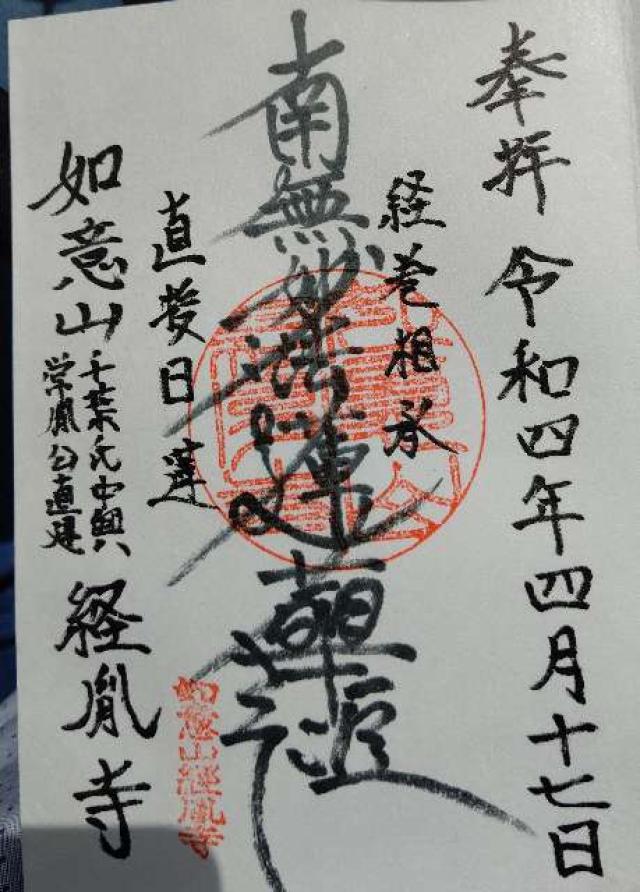 奉拝 令和四年四月十七日
経巻相承
南無妙法蓮華経
直受日蓮
如意山経胤寺
如意山
千葉氏中興
学胤公直建
経胤寺